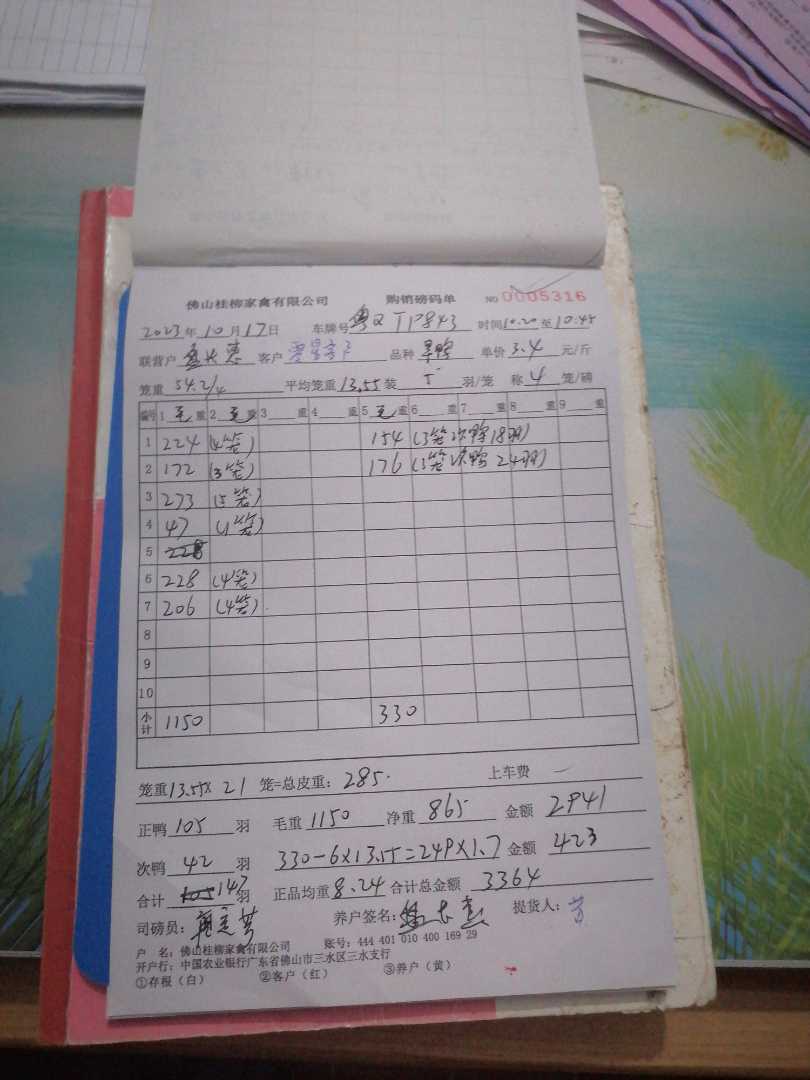 佛山桂柳家禽有限公司 购销磅码单 NO 0005316
2023年10月17日 车牌号 粤Q TP843 时间10.20至10:45
联营户 客户 品种 单价3.4元/斤
笼重 54.2/4 平均笼重13.55装 5 羽/笼 称 4 笼/磅
编号 1 毛 重 2 毛 重 3 重 4 重 5 毛 重 6 重 7 重 8 重 9 重
1 224 (4笼) 154 (3笼次鸭18羽)
2 172 (3笼) 176 (3笼次鸭24羽)
3 273 (5笼)
4 47 (1笼)
5 228
6 228 (4笼)
7 206 (4笼)
8
9
10
小计 1150 330
笼重13.55×21 笼=总皮重: 285. 上车费 —
正鸭 105 羽 毛重 1150 净重 865 金额 2941
次鸭 42 羽 330-6×13.55=249×1.7 金额 423
合计 105 147 羽 正品均重 8.24 合计总金额 3364
司磅员: 养户签名: 提货人:
户 名: 佛山桂柳家禽有限公司 账号: 444 401 010 400 169 29
开户行: 中国农业银行广东省佛山市三水区三水支行
①存根(白) ②客户(红) ③养户(黄)